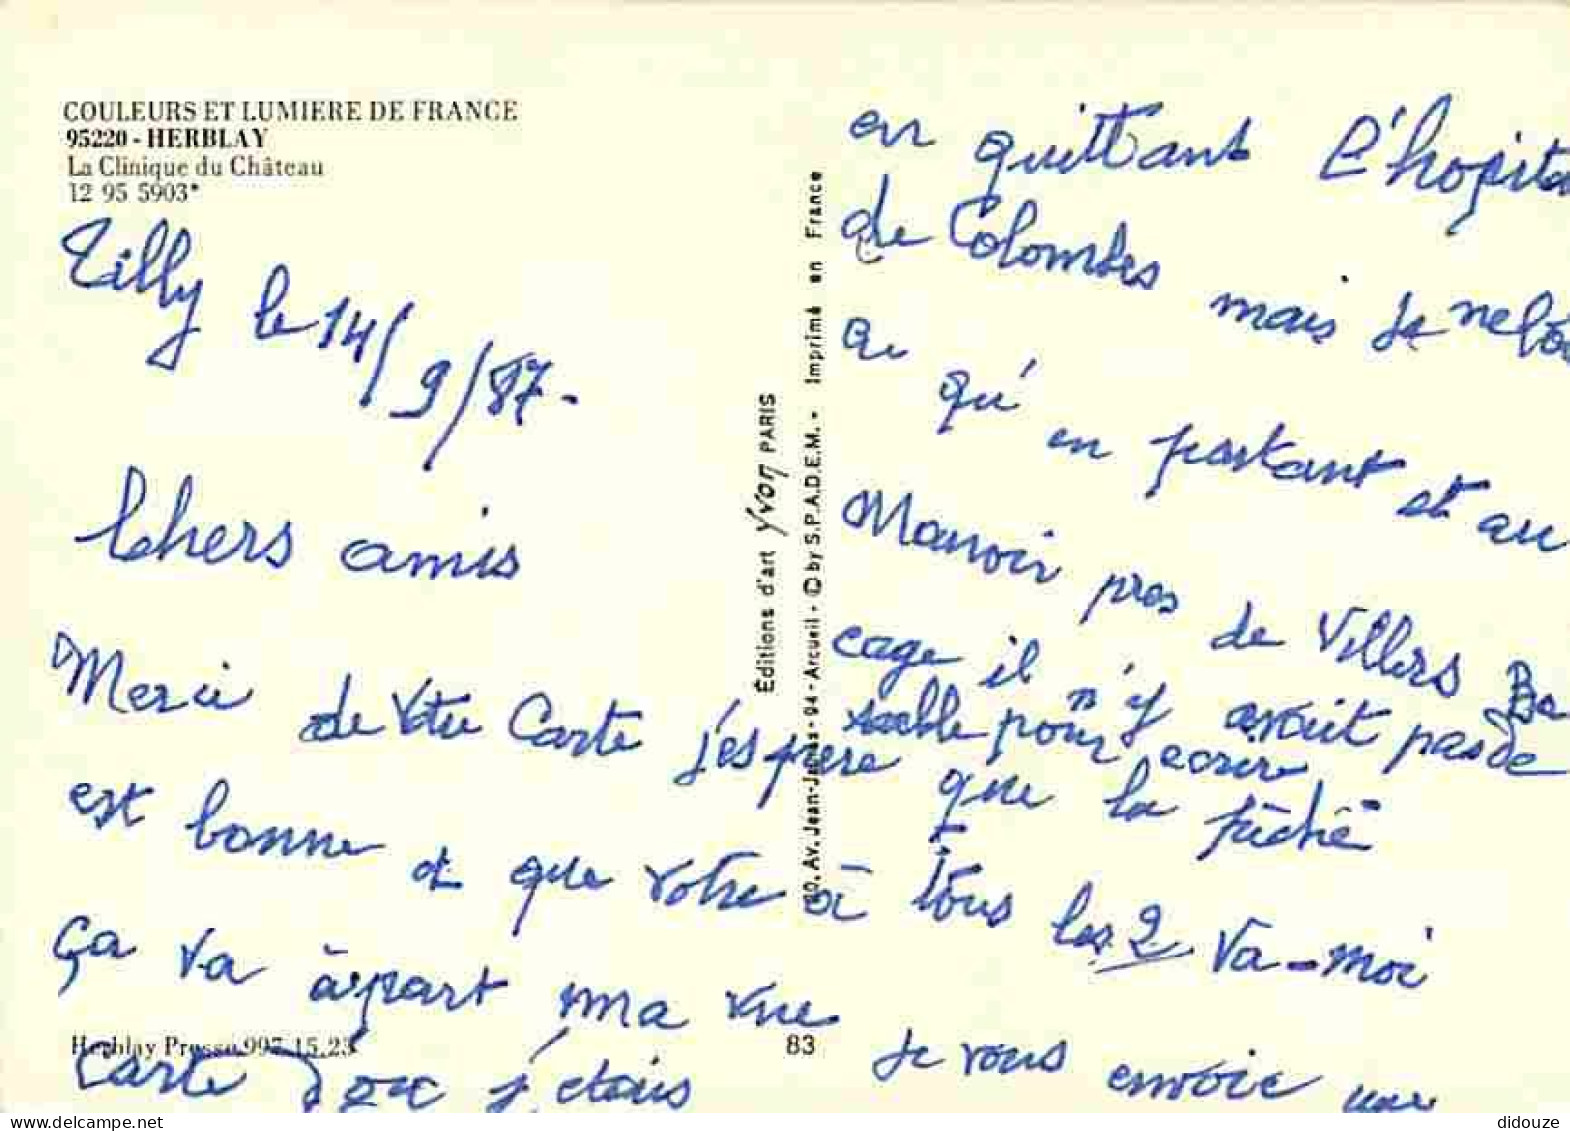 COULEURS ET LUMIERE DE FRANCE
95220 - HERBLAY
La Clinique du Château
12 95 5903*
Tilly le 14/9/87.
Chers amis
Merci de Votre Carte j'espere que la
est bonne et que votre à tous les 2 Va-moi
Ça va àpart ma vue Je vous envoie une
Carte d'où j'étais
Herblay Presse 997.15.23
83
Éditions d'art yvon PARIS
Av. Jean-Jaurès - 94 - Arcueil - © by S.P.A.D.E.M. - Imprimé en France
en quittant l'hopita
de Colombes mais je ne
qu'en partant et au
Manoir pres de Villers Bo
cage il n'y avait pas de
pour ecrire
didouze